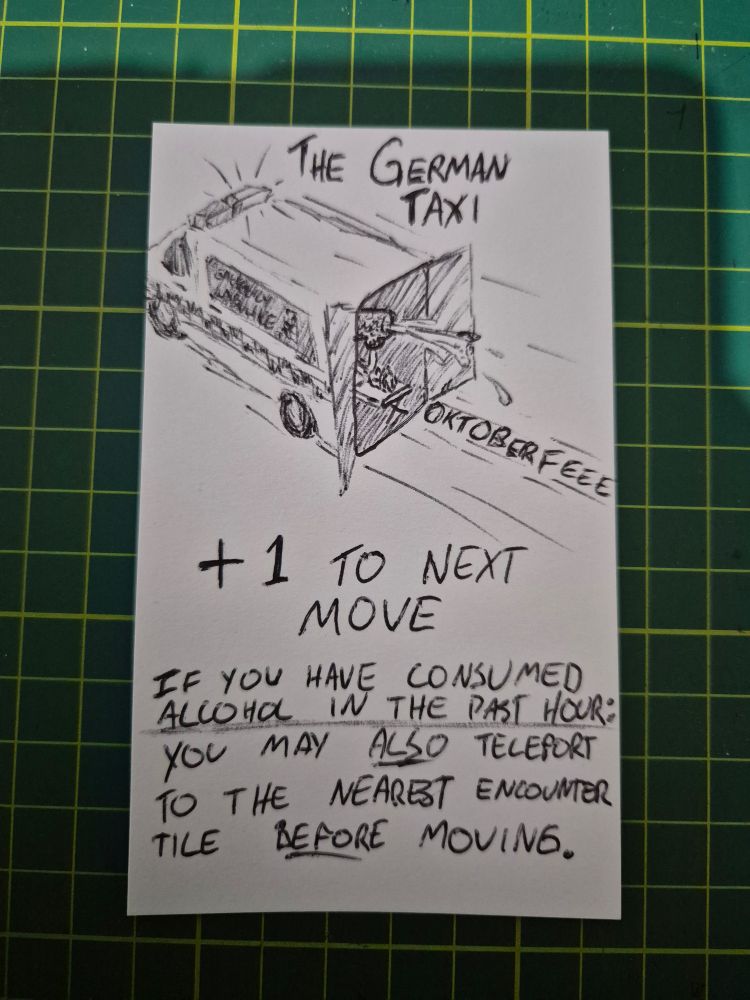 THE GERMAN
TAXI
EMERGENCY
AMBULANCE
OKTOBERFEEE
+1 TO NEXT
MOVE
IF YOU HAVE CONSUMED
ALCOHOL IN THE PAST HOUR:
YOU MAY ALSO TELEPORT
TO THE NEAREST ENCOUNTER
TILE BEFORE MOVING.